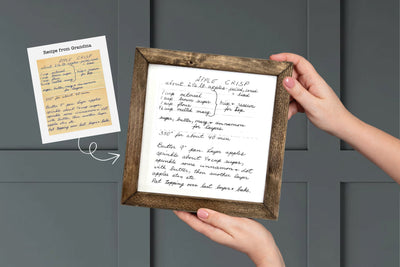 Recipe from Grandma
APPLE CRISP
about 2 to 2½ apples - peeled, cored
1 cup oatmeal
1 cup brown sugar
1 cup flour
½ cup melted marg
mix + reserve
for
sugar, butter, marg + cinnamon
for layers
350° for about 40 min
Butter 9" pan. Layer apples
sprinkle about ¼ cup sugar,
sprinkle some cinnamon + dot
with butter, then another layer
apples etc etc.
Pat topping over last layer + bake.